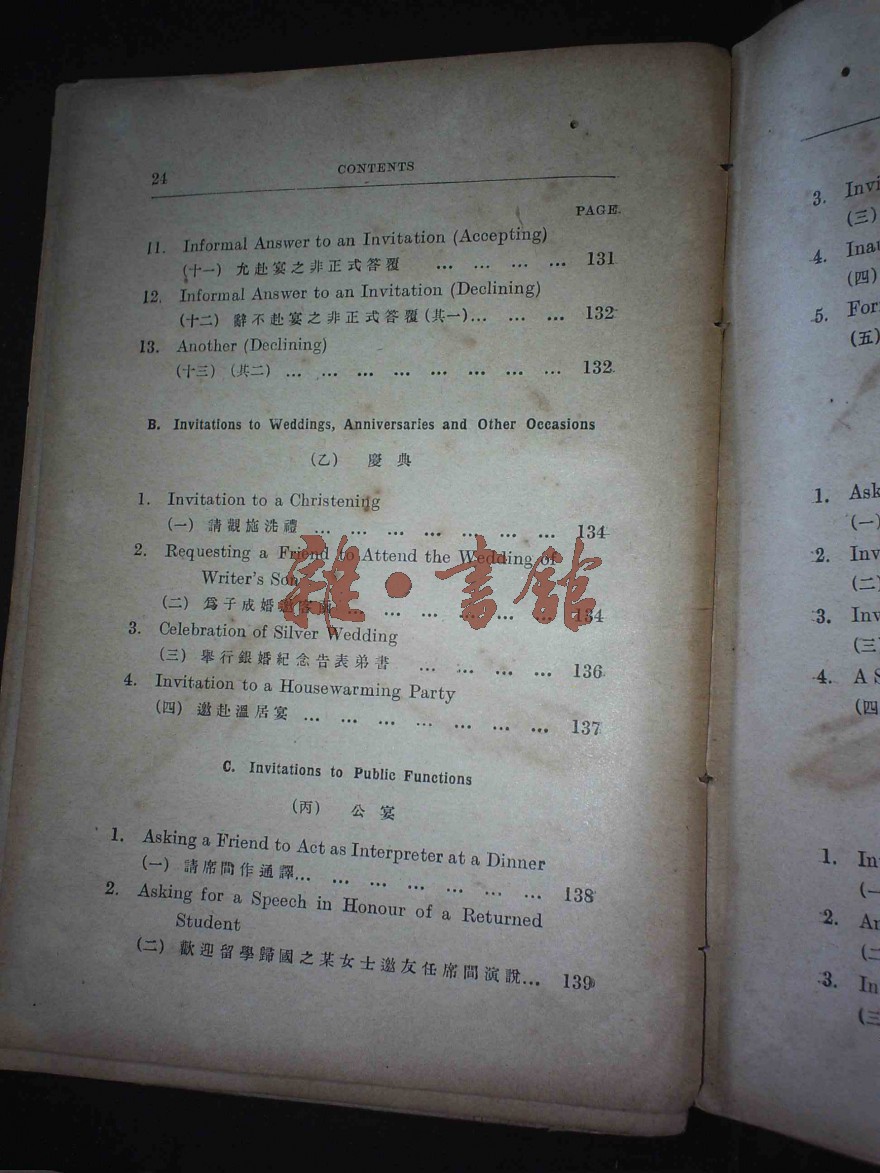 24 CONTENTS
PAGE.
11. Informal Answer to an Invitation (Accepting)
(十一) 允赴宴之非正式答覆 ... ... ... ... 131
12. Informal Answer to an Invitation (Declining)
(十二) 辭不赴宴之非正式答覆(其一)... ... ... 132
13. Another (Declining)
(十三) (其二) ... ... ... ... ... ... ... ... 132
B. Invitations to Weddings, Anniversaries and Other Occasions
(乙) 慶典
1. Invitation to a Christening
(一) 請觀施洗禮 ... ... ... ... ... ... ... 134
2. Requesting a Friend to Attend the Wedding of
Writer's Son
(二) 爲子成婚邀客函 ... ... ... ... ... ... 134
雜·書館
3. Celebration of Silver Wedding
(三) 舉行銀婚紀念告表弟書 ... ... ... ... 136
4. Invitation to a Housewarming Party
(四) 邀赴溫居宴 ... ... ... ... ... ... ... 137
C. Invitations to Public Functions
(丙) 公宴
1. Asking a Friend to Act as Interpreter at a Dinner
(一) 請席間作通譯... ... ... ... ... ... ... 138
2. Asking for a Speech in Honour of a Returned
Student
(二) 歡迎留學歸國之某女士邀友任席間演說... 139
3.
(三)
4.
(四)
5.
(五)
1.
(一)
2.
(二)
3.
(三)
4. A
(四)
1.
2.
3.